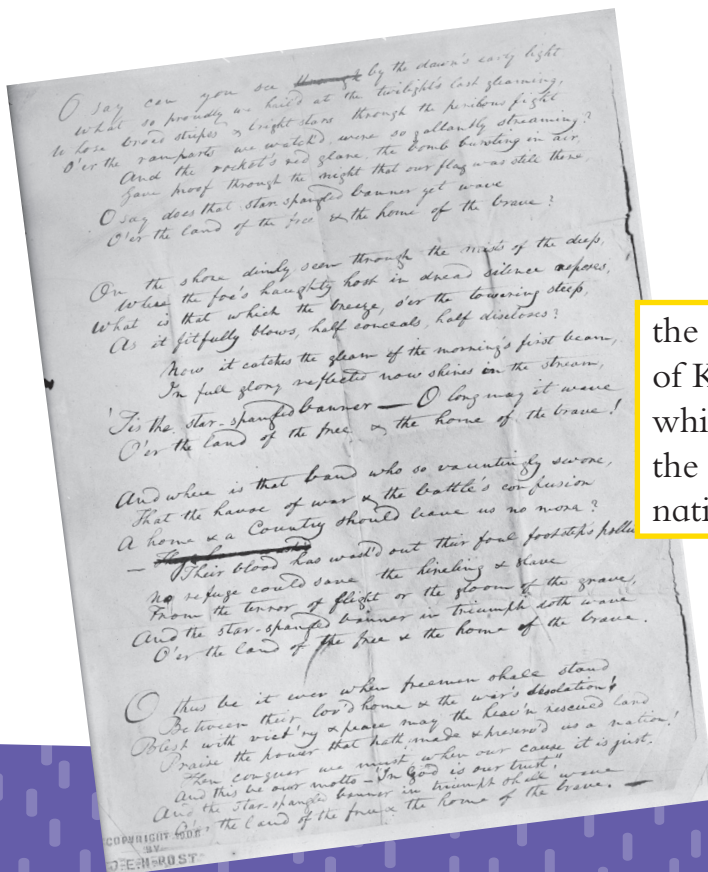 O say can you see through by the dawn's early light
What so proudly we hail'd at the twilight's last gleaming,
Whose broad stripes & bright stars through the perilous fight
O'er the ramparts we watch'd, were so gallantly streaming?
And the rocket's red glare, the bomb bursting in air,
Gave proof through the night that our flag was still there,
O say does that star-spangled banner yet wave
O'er the land of the free & the home of the brave?
On the shore dimly seen through the mists of the deep,
Where the foe's haughty host in dread silence reposes,
What is that which the breeze, o'er the towering steep,
As it fitfully blows, half conceals, half discloses?
Now it catches the gleam of the morning's first beam,
In full glory reflected now shines in the stream,
'Tis the star-spangled banner — O long may it wave
O'er the land of the free & the home of the brave!
And where is that band who so vauntingly swore,
That the havoc of war & the battle's confusion
A home & a Country should leave us no more?
— Their blood has wash'd out their foul footsteps pollu
No refuge could save the hireling & slave
From the terror of flight or the gloom of the grave,
And the star-spangled banner in triumph doth wave
O'er the land of the free & the home of the brave.
O thus be it ever when freemen shall stand
Between their lov'd home & the war's desolation!
Blest with vict'ry & peace may the heav'n rescued land
Praise the power that hath made & preserv'd us a nation!
Then conquer we must, when our cause it is just,
And this be our motto – "In God is our trust,"
And the star-spangled banner in triumph shall wave
O'er the land of the free & the home of the brave. —
COPYRIGHT
BY
J-E-H-POST
the
of K
whi
the
nati